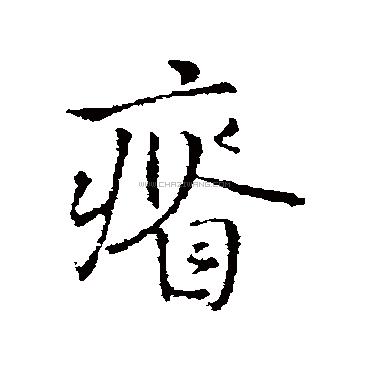 瘠
WWW.CHAZIWANG.COM